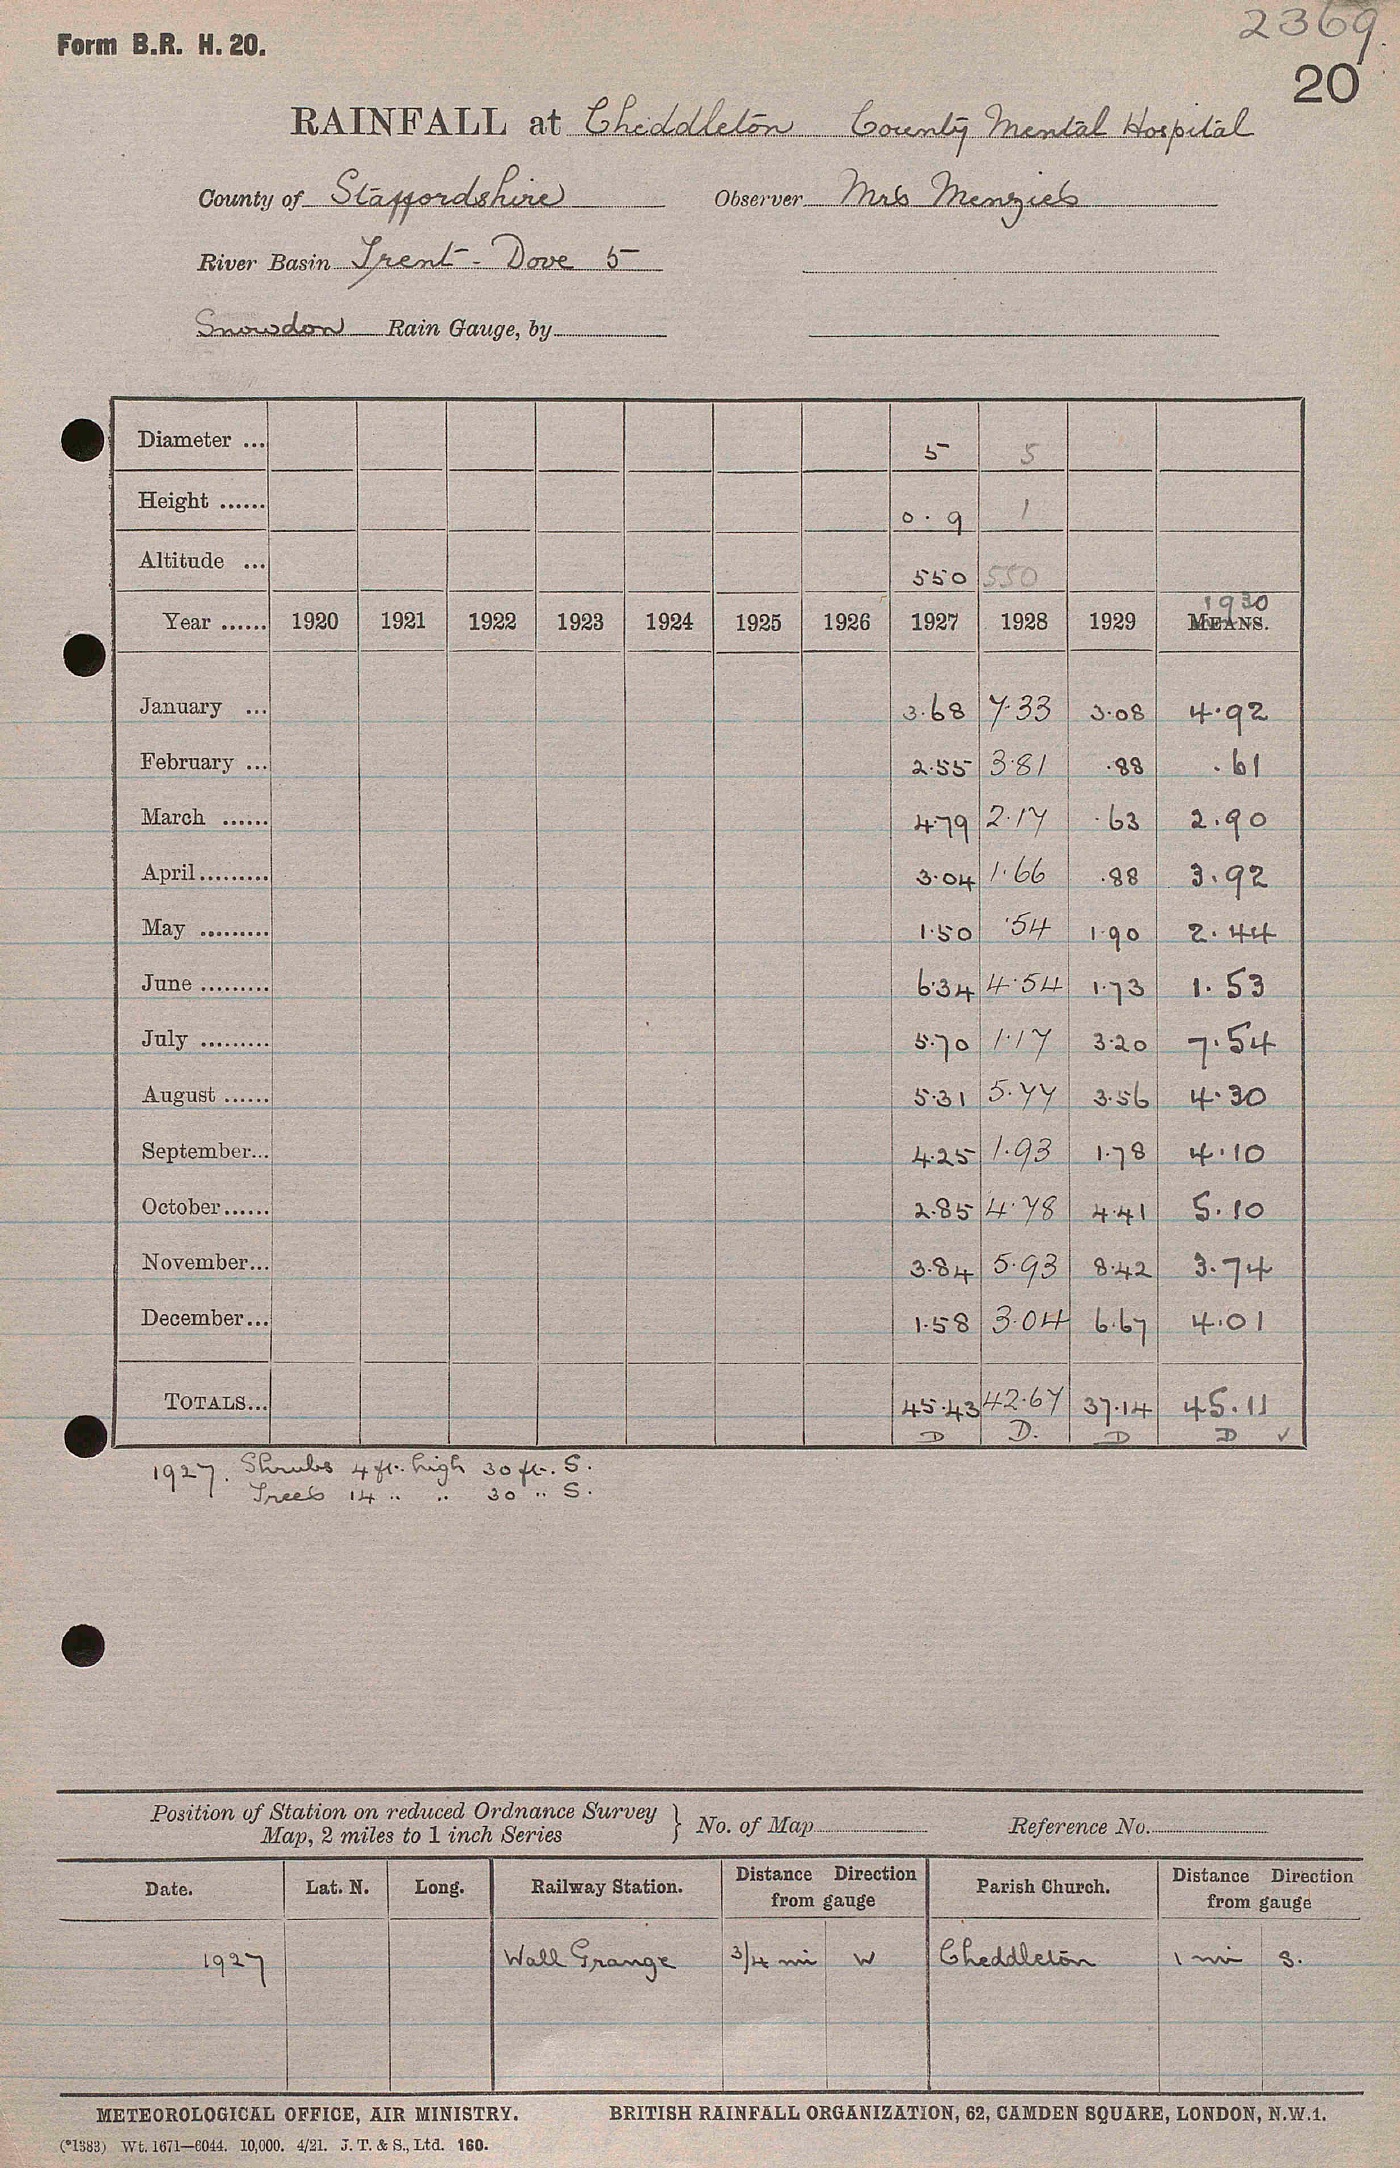 2369
Form B.R. H. 20.
20
RAINFALL at Cheddleton County Mental Hospital
County of Staffordshire Observer Mrs Menzies
River Basin Trent - Dove 5
Snowdon Rain Gauge, by
Diameter ... 5 5
Height ...... 0.9 1
Altitude ... 550 550
1930
Year ...... 1920 1921 1922 1923 1924 1925 1926 1927 1928 1929 MEANS.
January ... 3.68 7.33 3.08 4.92
February ... 2.55 3.81 .88 .61
March ...... 4.79 2.17 .63 2.90
April ......... 3.04 1.66 .88 3.92
May ......... 1.50 .54 1.90 2.44
June ......... 6.34 4.54 1.73 1.53
July ......... 5.70 1.17 3.20 7.54
August ...... 5.31 5.77 3.56 4.30
September... 4.25 1.93 1.78 4.10
October...... 2.85 4.78 4.41 5.10
November... 3.84 5.93 8.42 3.74
December... 1.58 3.04 6.67 4.01
TOTALS... 45.43 42.67 37.14 45.11
D D. D D ✓
1927. Shrubs 4 ft. high 30 ft. S.
Trees 14 " " 30 " S.
Position of Station on reduced Ordnance Survey
Map, 2 miles to 1 inch Series } No. of Map Reference No.
Date. Lat. N. Long. Railway Station. Distance Direction from gauge Parish Church. Distance Direction from gauge
1927 Wall Grange 3/4 mi W Cheddleton 1 mi S.
METEOROLOGICAL OFFICE, AIR MINISTRY. BRITISH RAINFALL ORGANIZATION, 62, CAMDEN SQUARE, LONDON, N.W.1.
(*1383) Wt. 1671—6044. 10,000. 4/21. J. T. & S., Ltd. 160.